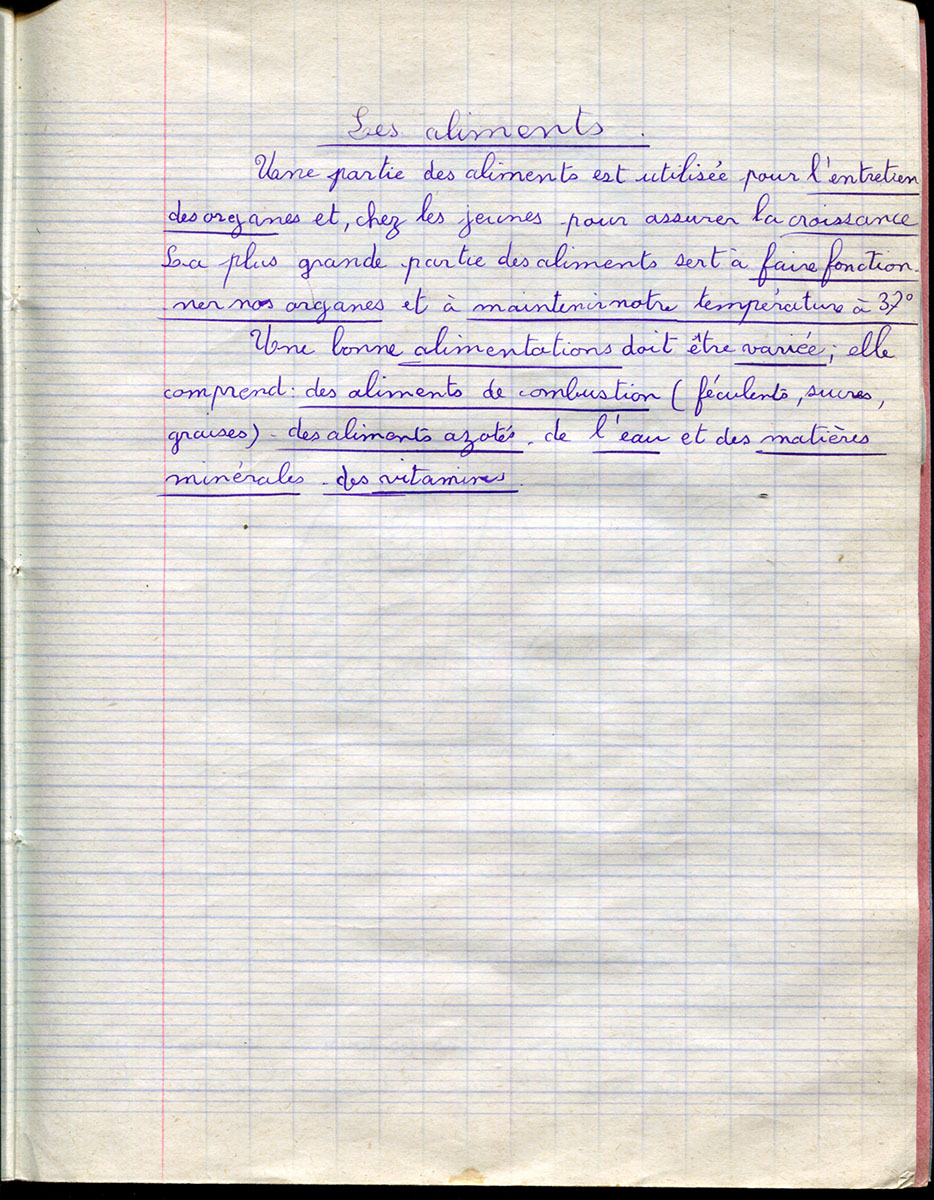 Les aliments.
Une partie des aliments est utilisée pour l'entretien
des organes et, chez les jeunes pour assurer la croissance
La plus grande partie des aliments sert à faire fonction-
ner nos organes et à maintenir notre température à 37°
Une bonne alimentations doit être variée; elle
comprend: des aliments de combustion (féculents, sucres,
graises) - des aliments azotés - de l'eau et des matières
minérales - des vitamines.